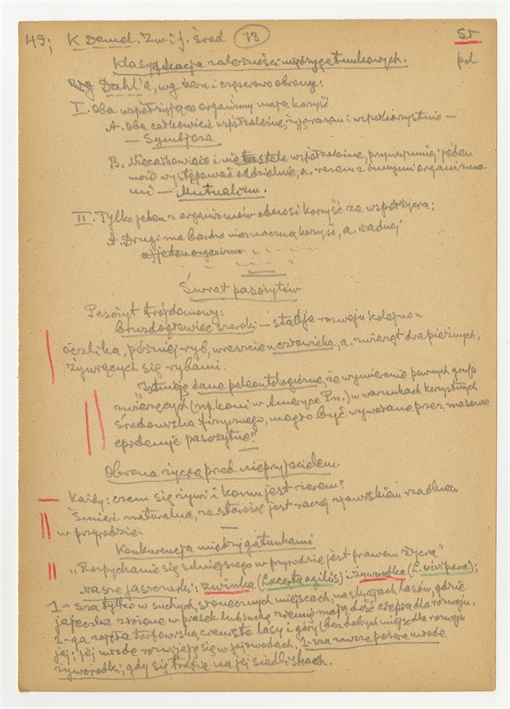 49; K. Demel. Zw. i j. środ. 13 Śr
pol
Klasyfikacja zależności międzygatunkowych.
Wg Dahl'a, wg żeru i częściowo obrony:
I. Oba współżyjące organizmy mają korzyść
A. Oba całkowicie współzależne, żyją razem i współkorzystnie —
— Symbioza.
B. Niecałkowicie i nie stale współzależne, przynajmniej jeden
może występować oddzielnie, a razem z innymi organizma
mi — Mutualizm.
II. Tylko jeden z organizmów odnosi korzyść ze współżycia:
A. Drugi ma bardzo nieznaczną korzyść, a żadnej
a) jeden organizm
Świat pasożytów
Pasożyt trójdomowy:
Bruzdogłowiec szeroki — stadja rozwoju kolejno u
oczlika, później ryb, wreszcie człowieka, a zwierząt drapieżnych,
żywiących się rybami.
"Istnieją dane paleontologiczne, że wymieranie pewnych grup
zwierzęcych (np. koni w Ameryce Pn.) w warunkach korzystnych
środowiska fizycznego, mogło być wywołane przez masowe
epidemje pasożytne".
Obrona życia przed nieprzyjacielem
Każdy: czem się żywi i komu jest żerem?
Śmierć naturalna, ze starości jest raczej zjawiskiem rzadkiem
w przyrodzie.
Konkurencja międzygatunkami
"Rozpychanie się silniejszego w przyrodzie jest prawem życia"
Nasze jaszczurki: zwinka (Lacerta agilis) i żyworodka (L. vivipara);
1 – sza tylko w suchych, słonecznych miejscach, na skrajach lasów, gdzie
jaja jej złożone w piasek lub suchą ziemię mają dość ciepła dla rozwoju.
2 – ga zajęła torfowiska, ciemiste lasy i góry (bez dobrych miejsc dla rozwoju
jaj: jej młode rozwijają się w jajowodach, 1-sza zawsze pożera młode
żyworodki, gdy się trafią na jej siedliskach.